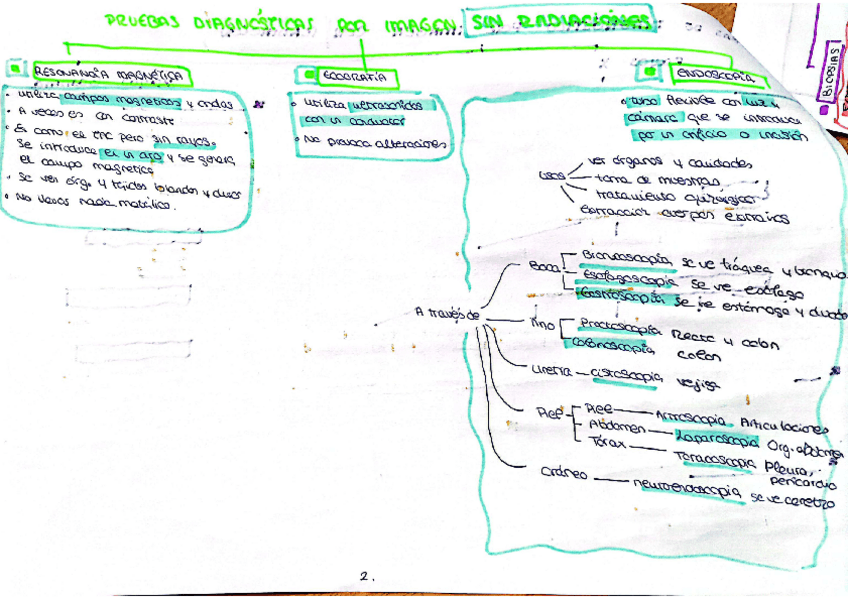 PRUEBAS DIAGNÓSTICAS POR IMAGEN SIN RADIACIONES
RESONANCIA MAGNÉTICA
utiliza campos magneticos y ondas
A veces es con contraste
Es como el TAC pero sin rayos.
Se introduce en un aro y se genera
el campo magnetico
Se ver órg. y tejidos blandos y duros
No llevas nada metálico.
ECOGRAFIA
utiliza ultrasonidos
con un conductor
No provoca alteraciones
ENDOSCOPIA
tubo flexible con luz y
cámara que se introduce
por un orificio o incisión
usos
ver órganos y cavidades
toma de muestras
tratamiento quirúrgico
extracción cuerpos extraños
A través de
Boca
Broncoscopia se ve tráquea y bronquios
Esofagoscopia se ve esófago
Gastroscopia se ve estómago y duodeno
Ano
Proctoscopia Recto y colon
Colonoscopia colon
Uretra cistoscopia vejiga
Piel
Piel Artroscopia Articulaciones
Abdomen Laparoscopia Org. abdomen
Tórax Toracoscopia Pleura,
pericardio
Cráneo neuroendoscopia se ve cerebro
2.
BIOPSIAS